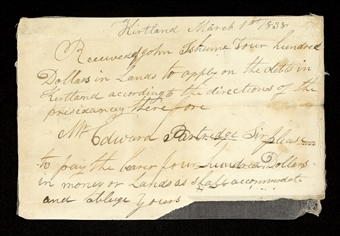 Kirtland March 1st 1838
Received of John Ishune Four hundred
Dollars in Lands to apply on the debts in
Kirtland according to the directions of the
presidancy therefore
Mr Edward Partredge Sir please
to pay the barer four hundred Dollars
in money or Lands as shall accommodate
and oblige yours